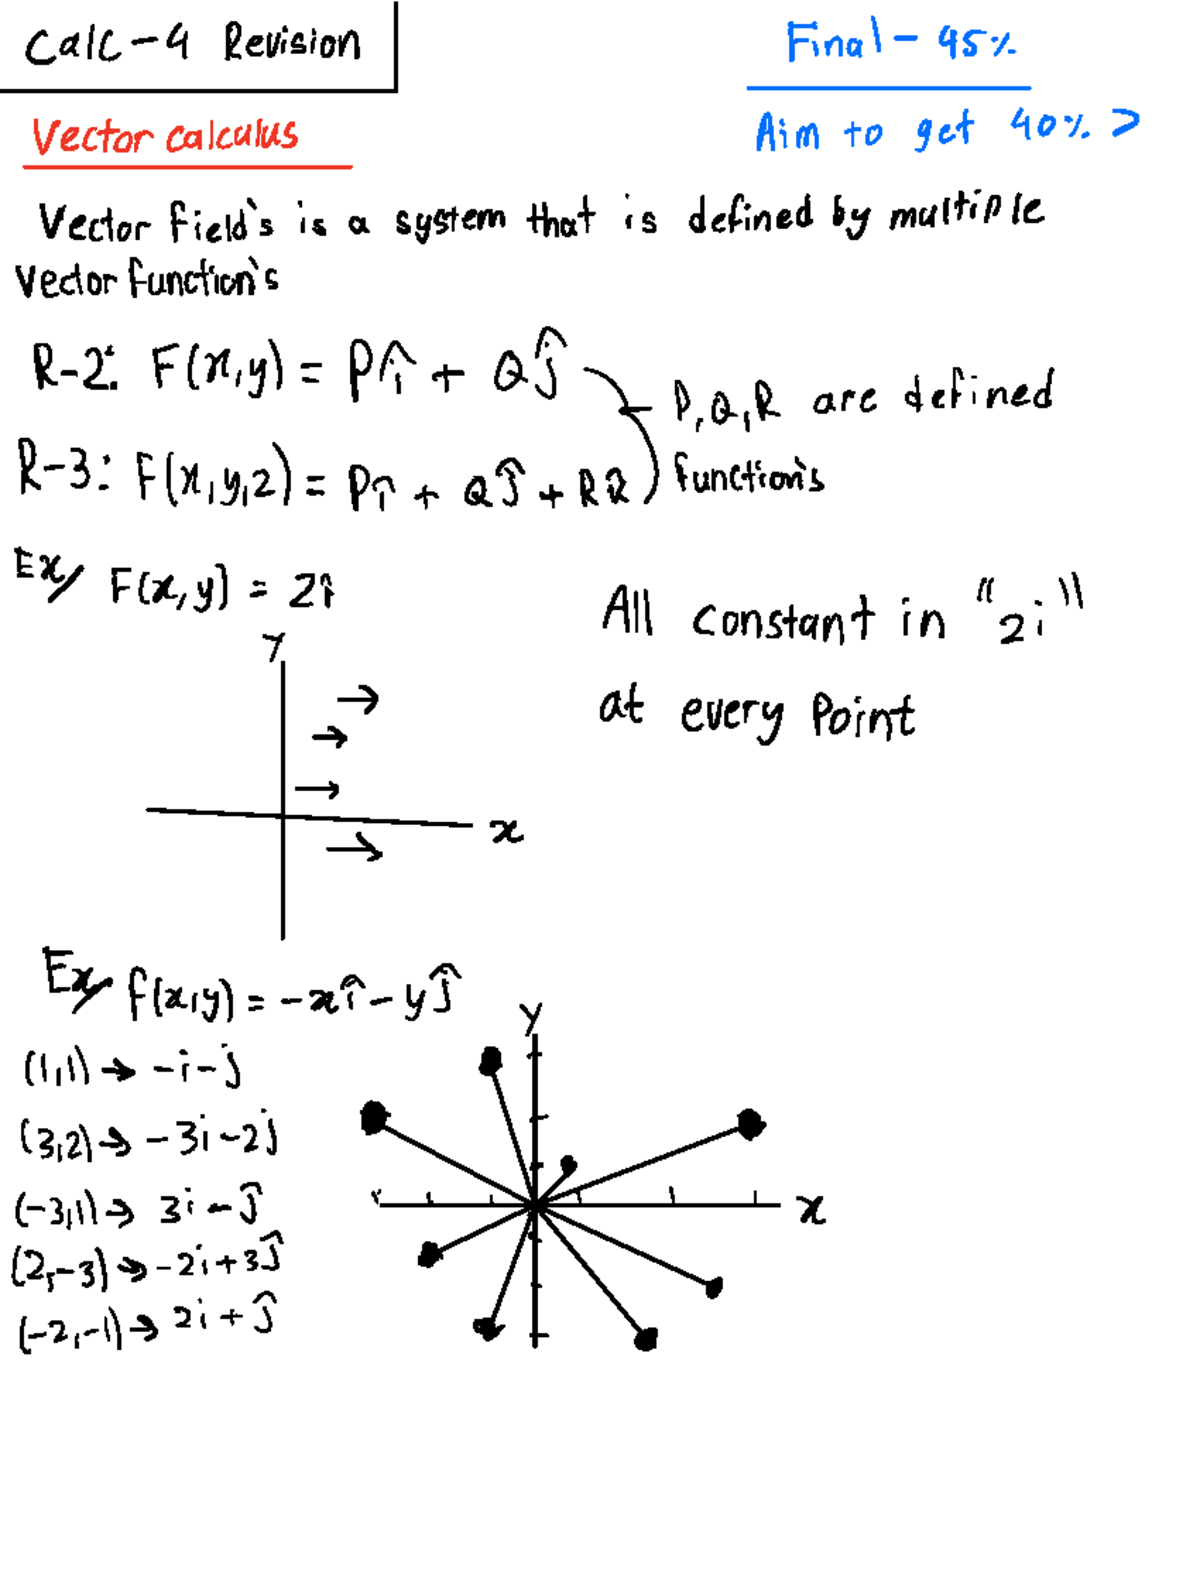 Calc-4 Revision
Final - 45%
Aim to get 40% >
Vector calculus
Vector field's is a system that is defined by multiple
vector function's
R-2: F(x,y) = Pî + Qĵ
P,Q,R are defined
function's
R-3: F(x,y,z) = Pî + Qĵ + Rk̂
Ex/ F(x,y) = 2î
All constant in "2i"
at every Point
y
x
Ex/ f(x,y) = -xî - yĵ
(1,1) → -i-j
(3,2) → -3i-2j
(-3,1) → 3i-ĵ
(2,-3) → -2i+3ĵ
(-2,-1) → 2i+ĵ
y
x